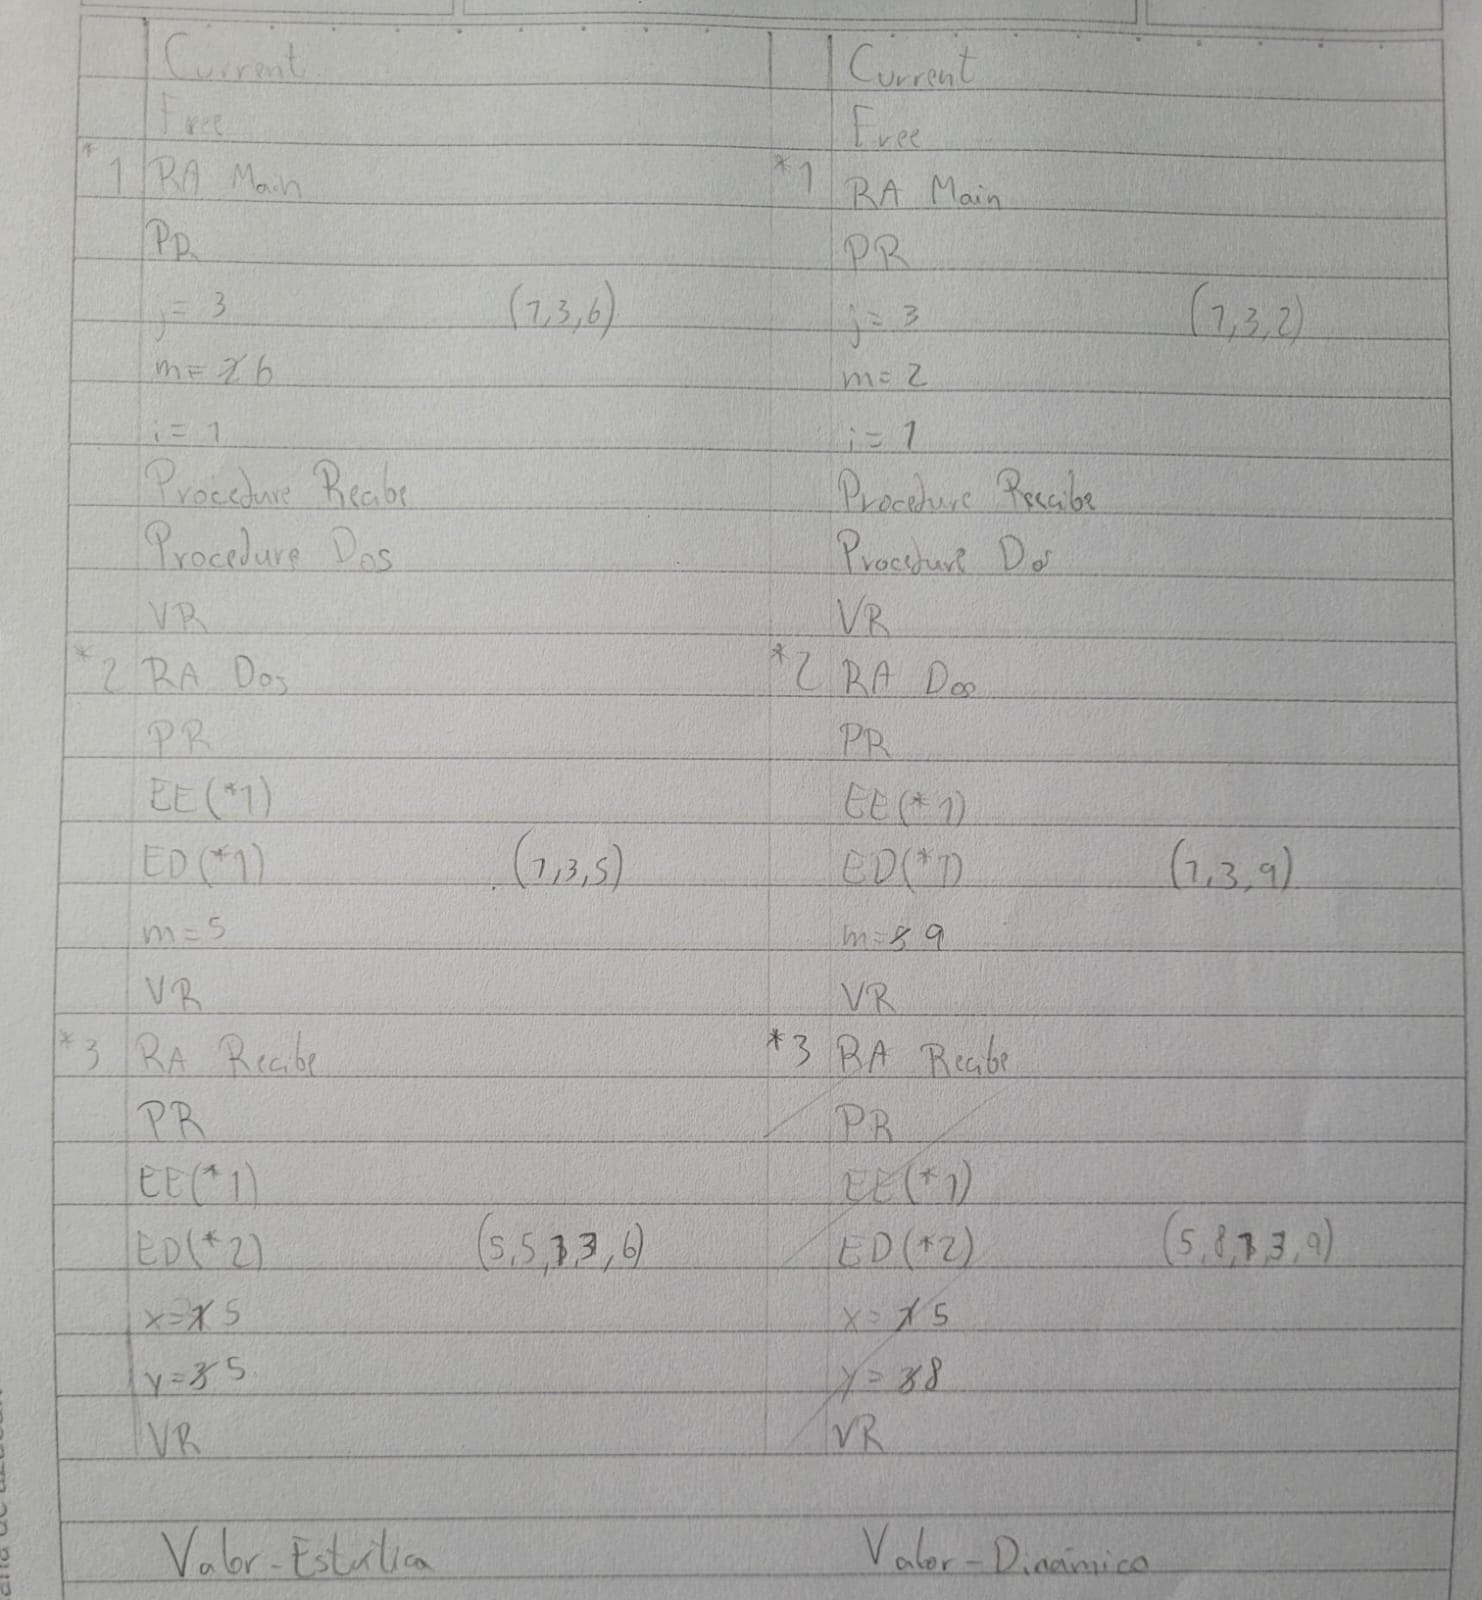 Current
Free
*1 RA Main
PR
j= 3 (1,3,6)
m= 2 6
i= 1
Procedure Recibe
Procedure Dos
VR
*2 RA Dos
PR
EE(*1)
ED(*1) (1,3,5)
m=5
VR
*3 RA Recibe
PR
EE(*1)
ED(*2) (5,5,1,3,6)
x=1 5
y=3 5
VR
Valor-Estática
Current
Free
*1 RA Main
PR
j= 3 (1,3,2)
m= 2
i= 1
Procedure Recibe
Procedure Dos
VR
*2 RA Dos
PR
EE(*1)
ED(*1) (1,3,9)
m=5 9
VR
*3 RA Recibe
PR
EE(*1)
ED(*2) (5,8,1,3,9)
x= 1 5
y= 3 8
VR
Valor-Dinámico